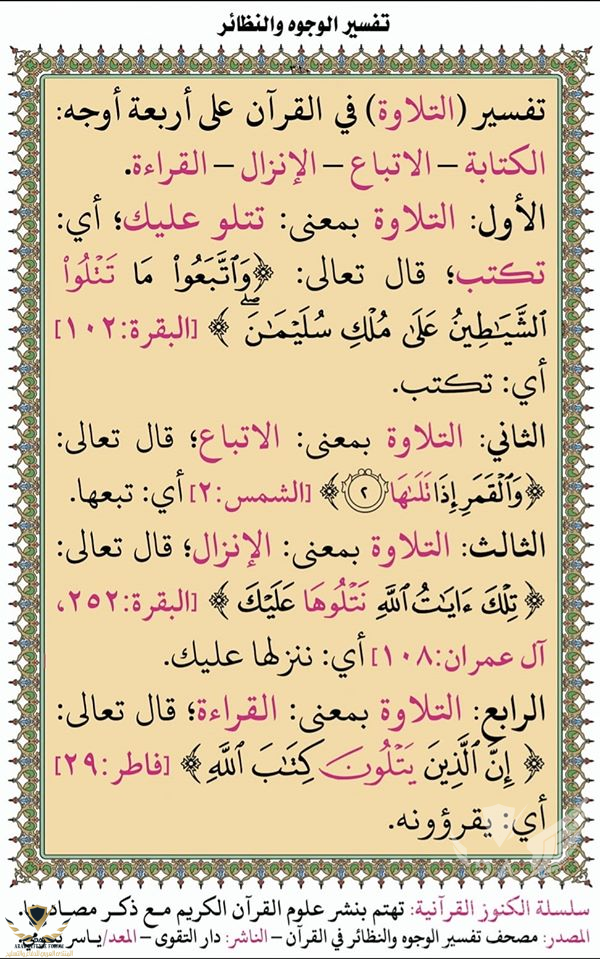 تفسير الوجوه والنظائر
تفسير (التلاوة) في القرآن على أربعة أوجه:
الكتابة – الاتباع – الإنزال – القراءة.
الأول: التلاوة بمعنى: تتلو عليك؛ أي:
تكتب؛ قال تعالى: ﴿وَٱتَّبَعُوا۟ مَا تَتْلُوا۟
ٱلشَّيَـٰطِينُ عَلَىٰ مُلْكِ سُلَيْمَـٰنَ ۖ﴾ [البقرة:١٠٢]
أي: تكتب.
الثاني: التلاوة بمعنى: الاتباع؛ قال تعالى:
﴿وَٱلْقَمَرِ إِذَا تَلَىٰهَا ٢﴾ [الشمس:٢] أي: تبعها.
الثالث: التلاوة بمعنى: الإنزال؛ قال تعالى:
﴿تِلْكَ ءَايَـٰتُ ٱللَّهِ نَتْلُوهَا عَلَيْكَ﴾ [البقرة:٢٥٢،
آل عمران:١٠٨] أي: ننزلها عليك.
الرابع: التلاوة بمعنى: القراءة؛ قال تعالى:
﴿إِنَّ ٱلَّذِينَ يَتْلُونَ كِتَـٰبَ ٱللَّهِ﴾ [فاطر:٢٩]
أي: يقرؤونه.
سلسلة الكنوز القرآنية: تهتم بنشر علوم القرآن الكريم مع ذكر
المصدر: مصحف تفسير الوجوه والنظائر في القرآن – الناشر: دار التقوى – المعد/ ياسر